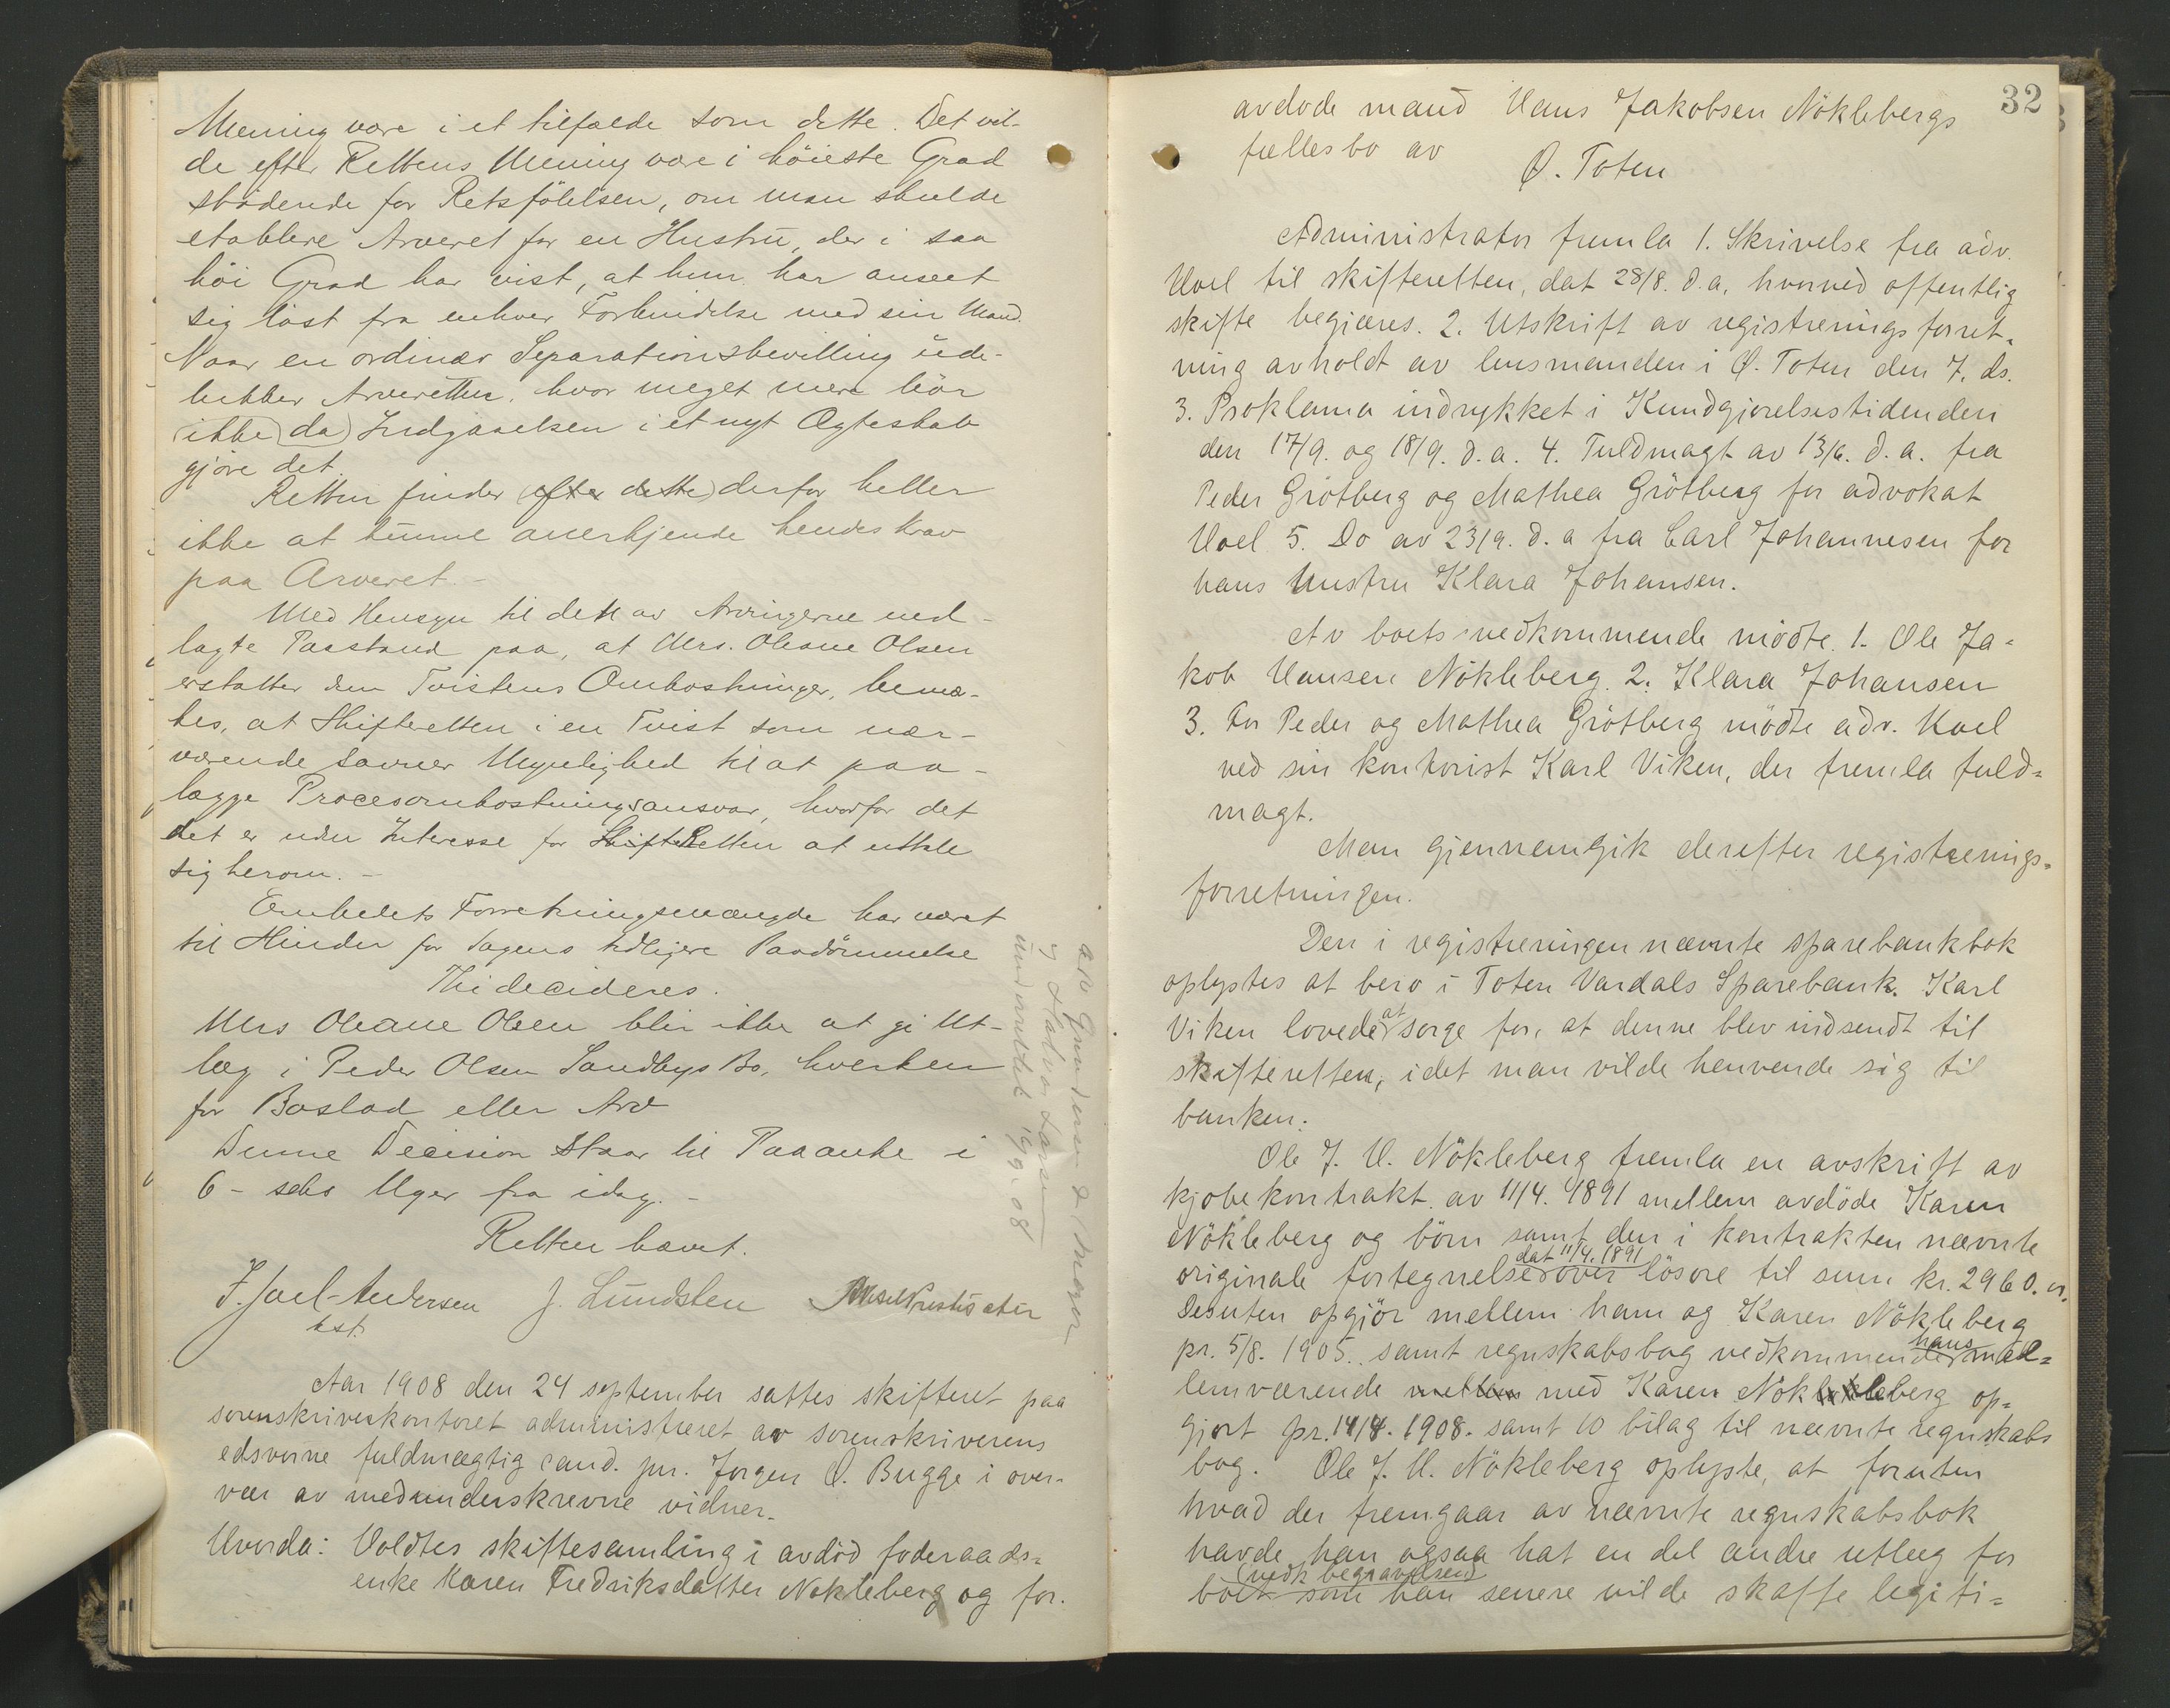 Mening være i et tilfælde som dette. Det vil-
de efter Rettens Mening være i höieste Grad
stödende for Retsfölelsen, om man skulde
etablere Arveret for en Hustru, der i saa
höi Grad har vist, at hun har anseet
sig löst fra enhver Forbindelse med sin Mand.
Naar en ordinær Separationsbevilling ude-
lukker Arveretten, hvor meget mere bör
ikke (da) Indgaaelsen i et nyt Ægteskab
gjöre det.
Retten finder (efter dette) derfor heller
ikke at kunne anerkjende hendes krav
paa Arveret. -
Med Hensyn til den av Arvingerne ned-
lagte Paastand paa, at Mrs. Oleane Olsen
erstatter dem Tvistens Omkostninger, bemær-
kes, at Skifteretten i en Tvist som nær-
værende savner Myndighed til at paa-
lægge Procesomkostningsansvar, hvorfor det
det er uden Interesse for SkifteRetten at uttale
sig herom. -
Embedets Forretningsmængde har været
til Hinder for Sagens tidligere Paadömmelse
Thi decideres.
Mrs Oleane Olsen blir ikke at gi Ut-
læg i Peder Olsen Sandbys Bo, hverken
for Boslod eller Arv
Denne Decision staar til Paaanke i
6 - seks Uger fra idag. -
Retten hævet.
F. Joel-Andersen J. Lundsten
kst.
Aar 1908 den 24 september sattes skifteret paa
sorenskriverkontoret administreret av sorenskriverens
edsvorne fuldmægtig cand. jur. Jørgen O. Bugge i over-
vær av medunderskrevne vidner.
Hvorda: Holdtes skiftesamling i avdöd foderaads-
enke Karen Fredriksdatter Nökleberg og for.
32
avdöde mand Hans Jakobsen Nöklebergs
fællesbo av
Ø. Toten
Administrator fremla 1. Skrivelse fra adv.
Hoel til skifteretten, dat 28/8. d.a. hvorved offentlig
skifte begjæres. 2. Utskrift av registreringsforret-
ning avholdt av lensmanden i Ø. Toten den 7. ds.
3. Proklama indrykket i Kundgjørelsestidenden
den 17/9. og 18/9. d.a. 4. Fuldmagt av 13/6. d.a. fra
Peder Grötberg og Mathea Grötberg for advokat
Hoel 5. Do av 23/9. d.a fra Carl Johannesen for
hans hustru Klara Johansen.
Av boets vedkommende mödte. 1. Ole Ja-
kob Hansen Nökleberg. 2. Klara Johansen
3. For Peder og Mathea Grötberg mödte adv. Hoel
ved sin kontorist Karl Viken, der fremla fuld-
magt.
Man gjennemgik derefter registrerings-
forretningen.
Den i registreringen nævnte sparebankbok
oplystes at bero i Toten Vardals Sparebank. Karl
Viken lovede at sørge for, at denne blev indsendt til
skifteretten, idet man vilde henvende sig til
banken.
Ole J. H. Nökleberg fremla en avskrift av
kjøbekontrakt av 11/4. 1891 mellem avdöde Karen
Nökleberg og börn samt den i kontrakten nævnte
originale fortegnelse dat 11/4. 1891 over lösöre til sum kr. 2960. 
Desuten opgjör mellem ham og Karen Nökleberg
pr. 5/8. 1905. samt regnskabsbog vedkommende hans mel-
lemværende mellem med Karen Nökleberg op-
gjort pr. 14/8. 1908. samt 10 bilag til nævnte regnskabs
bog. Ole J. H. Nökleberg oplyste, at foruten
hvad der fremgaar av nævnte regnskabsbok
havde han ogsaa hat en del andre utlæg for
boet (vedk begravelsen) som han senere vilde skaffe legiti-